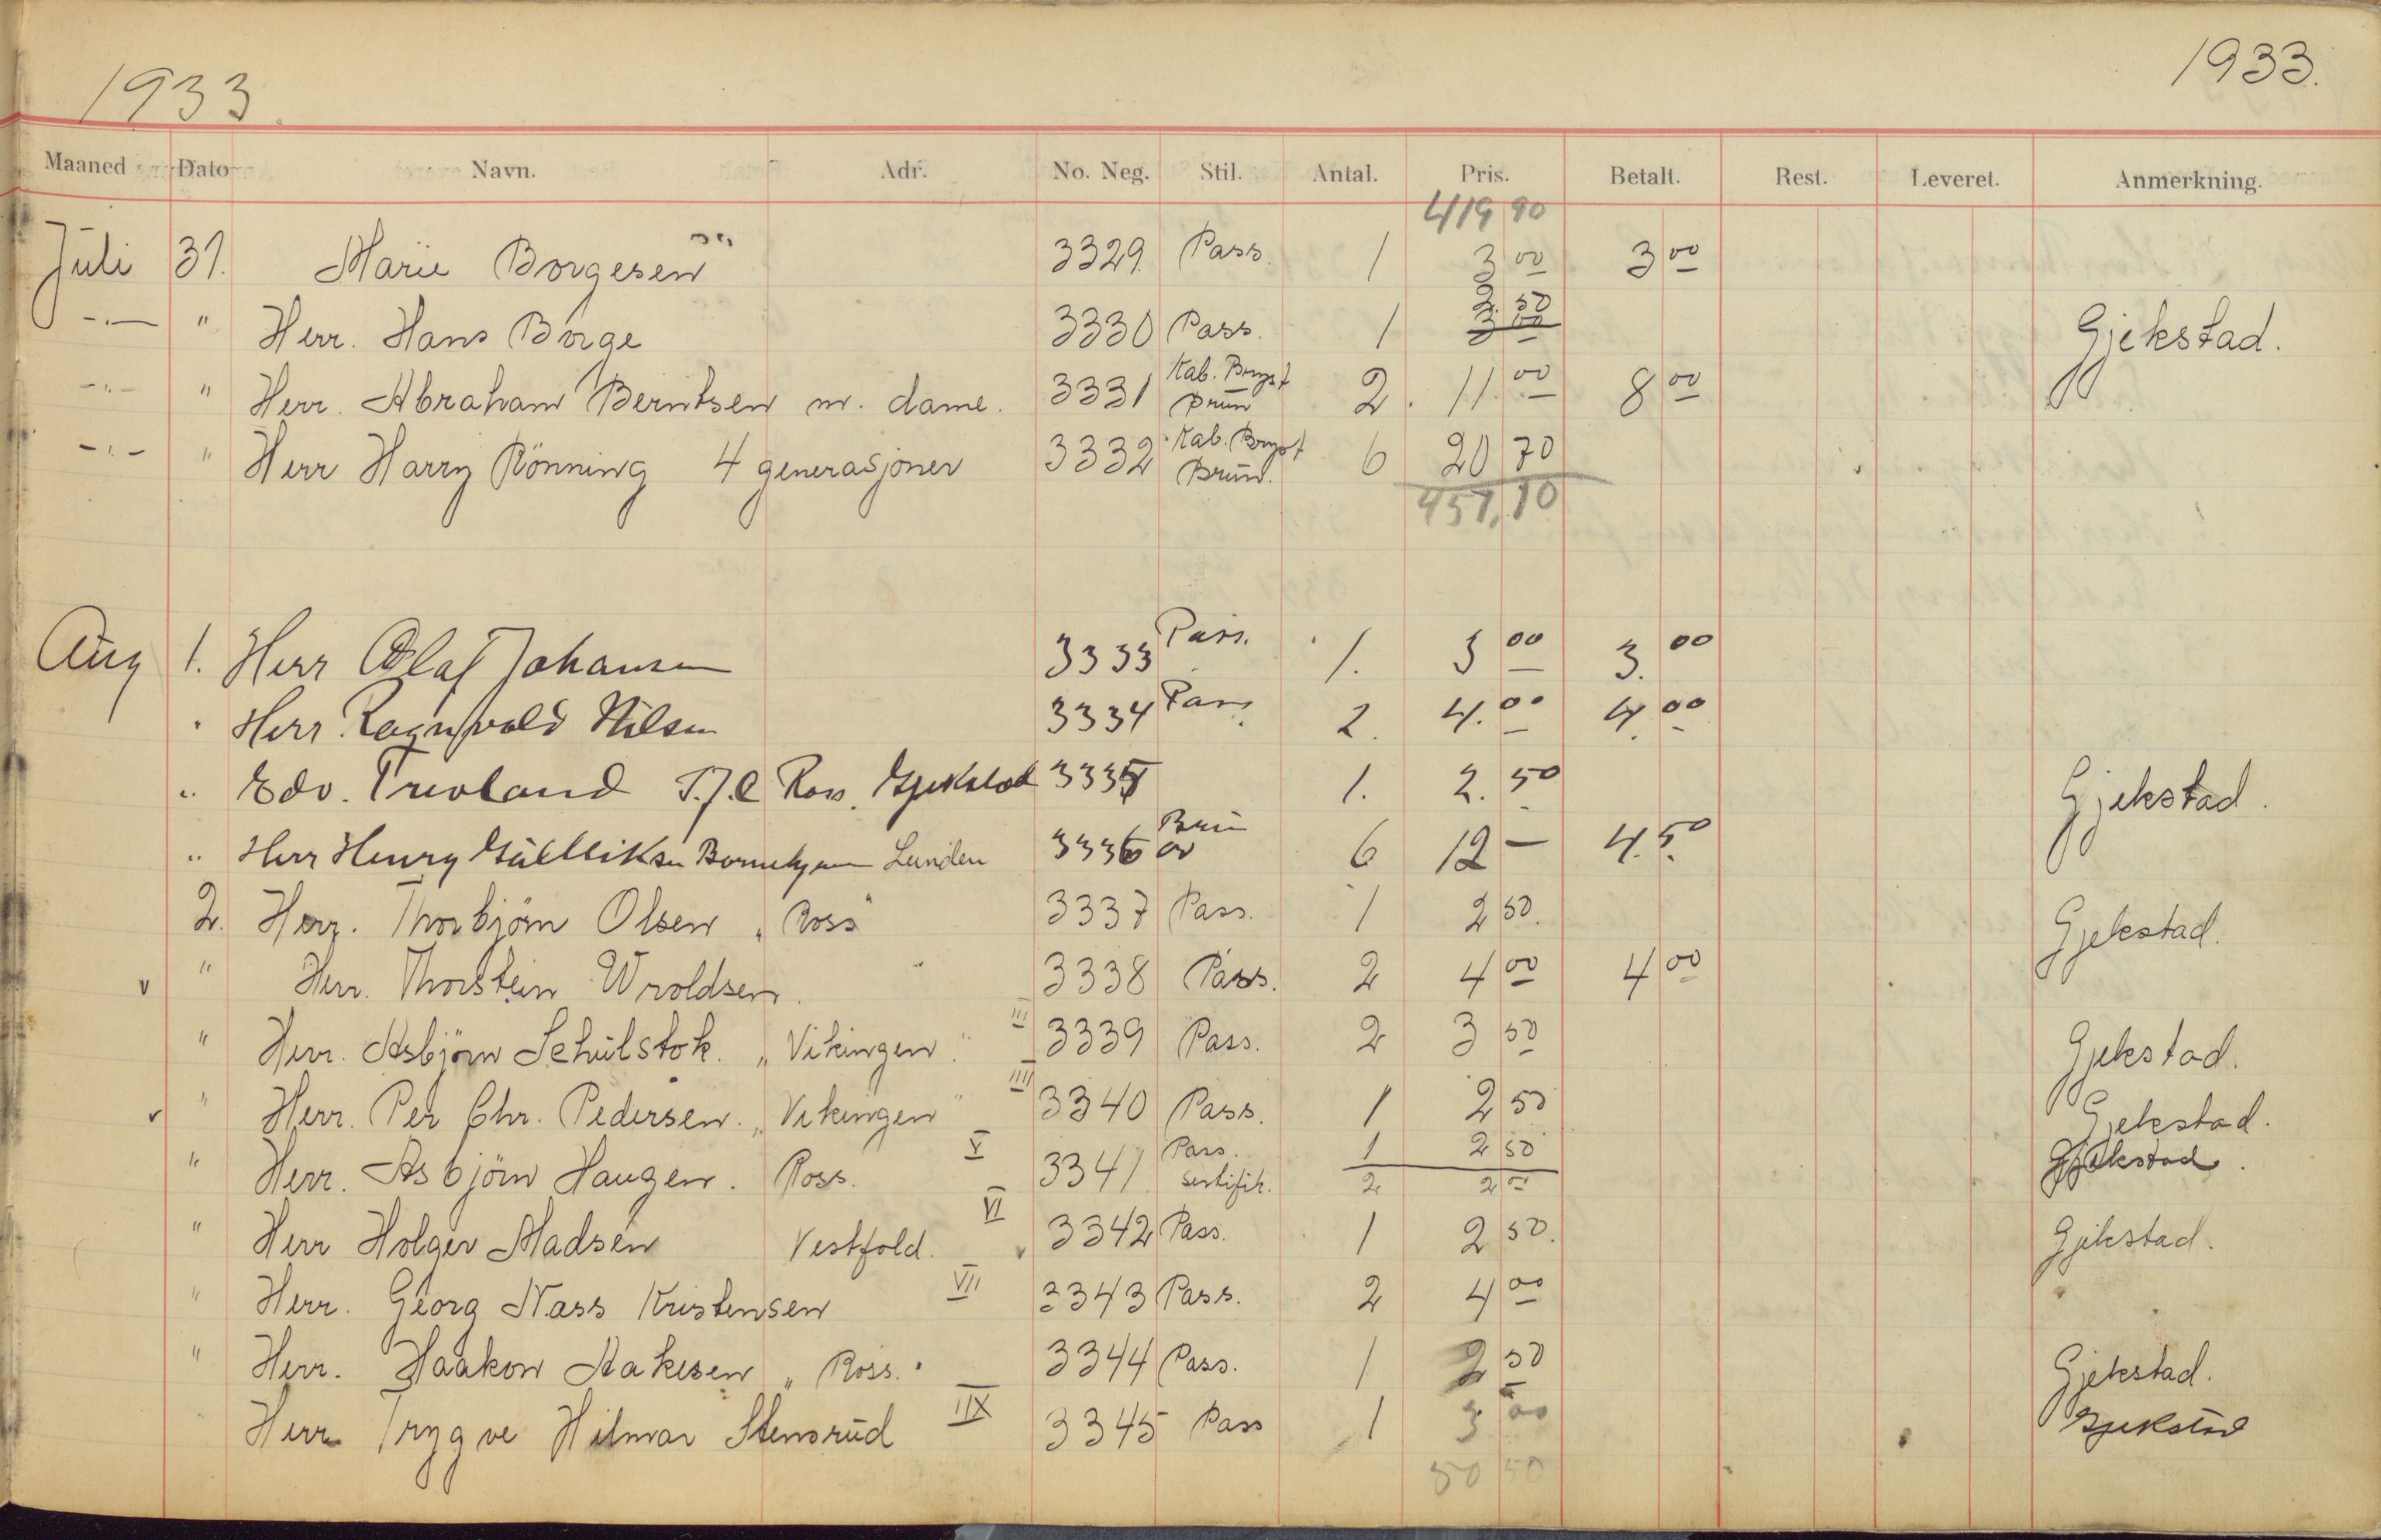 1933. 1933.
Maaned Dato Navn. Adr. No. Neg. Stil. Antal. Pris. Betalt. Rest. Leveret. Anmerkning.
419 90
Juli 31. Marie Borgesen 3329. Pass. 1 3 00 3 00
-.- " Herr. Hans Borge 3330 Pass. 1 2 50 3 00 Gjekstad.
-.- " Herr. Abraham Berntsen m. dame. 3331 Kab. Bryst Brun 2. 11 00 8 00
-.- " Herr Harry Rönning 4 generasjoner 3332 Kab. Bryst Brun. 6 20 70
457,10
Aug 1. Herr Olaf Johansen 3333 Pass. 1. 3 00 3. 00
" Herr. Ragnvald Nilsen 3334 Pass. 2. 4. 00 4. 00
" Edv. T.J.C Ross. Gjekstad 3335 1. 2. 50 Gjekstad.
" Herr Henry Gulliksen Lunden 3336 Brun 6 12 - 4. 50
2. Herr. Thorbjörn Olsen "Ross" 3337 Pass. 1 2 50. Gjekstad.
v " Herr. Thorstein Wroldsen. 3338 Pass. 2 4 00 4 00
" Herr. Asbjörn Schulstok. "Vikingen" III 3339 Pass. 2 3 50 Gjekstad.
v " Herr. Per Chr. Pedersen. "Vikingen" IIII 3340 Pass. 1 2 50 Gjekstad.
" Herr. Asbjörn Haugen. Ross. V 3341 Pass. sertifik. 1 2 50 Gjekstad.
2 2 00
" Herr Holger Madsen Vestfold. VI v 3342 Pass. 1 2 50. Gjekstad.
" Herr. Georg Nass Kristensen VII 3343 Pass. 2 4 00
" Herr. Haakon Aakesen "Ross." 3344 Pass. 1 2 50 Gjekstad.
Herr Trygve Hilmar Stensrud IIX 3345 Pass 1 3 00 Gjekstad
50 50